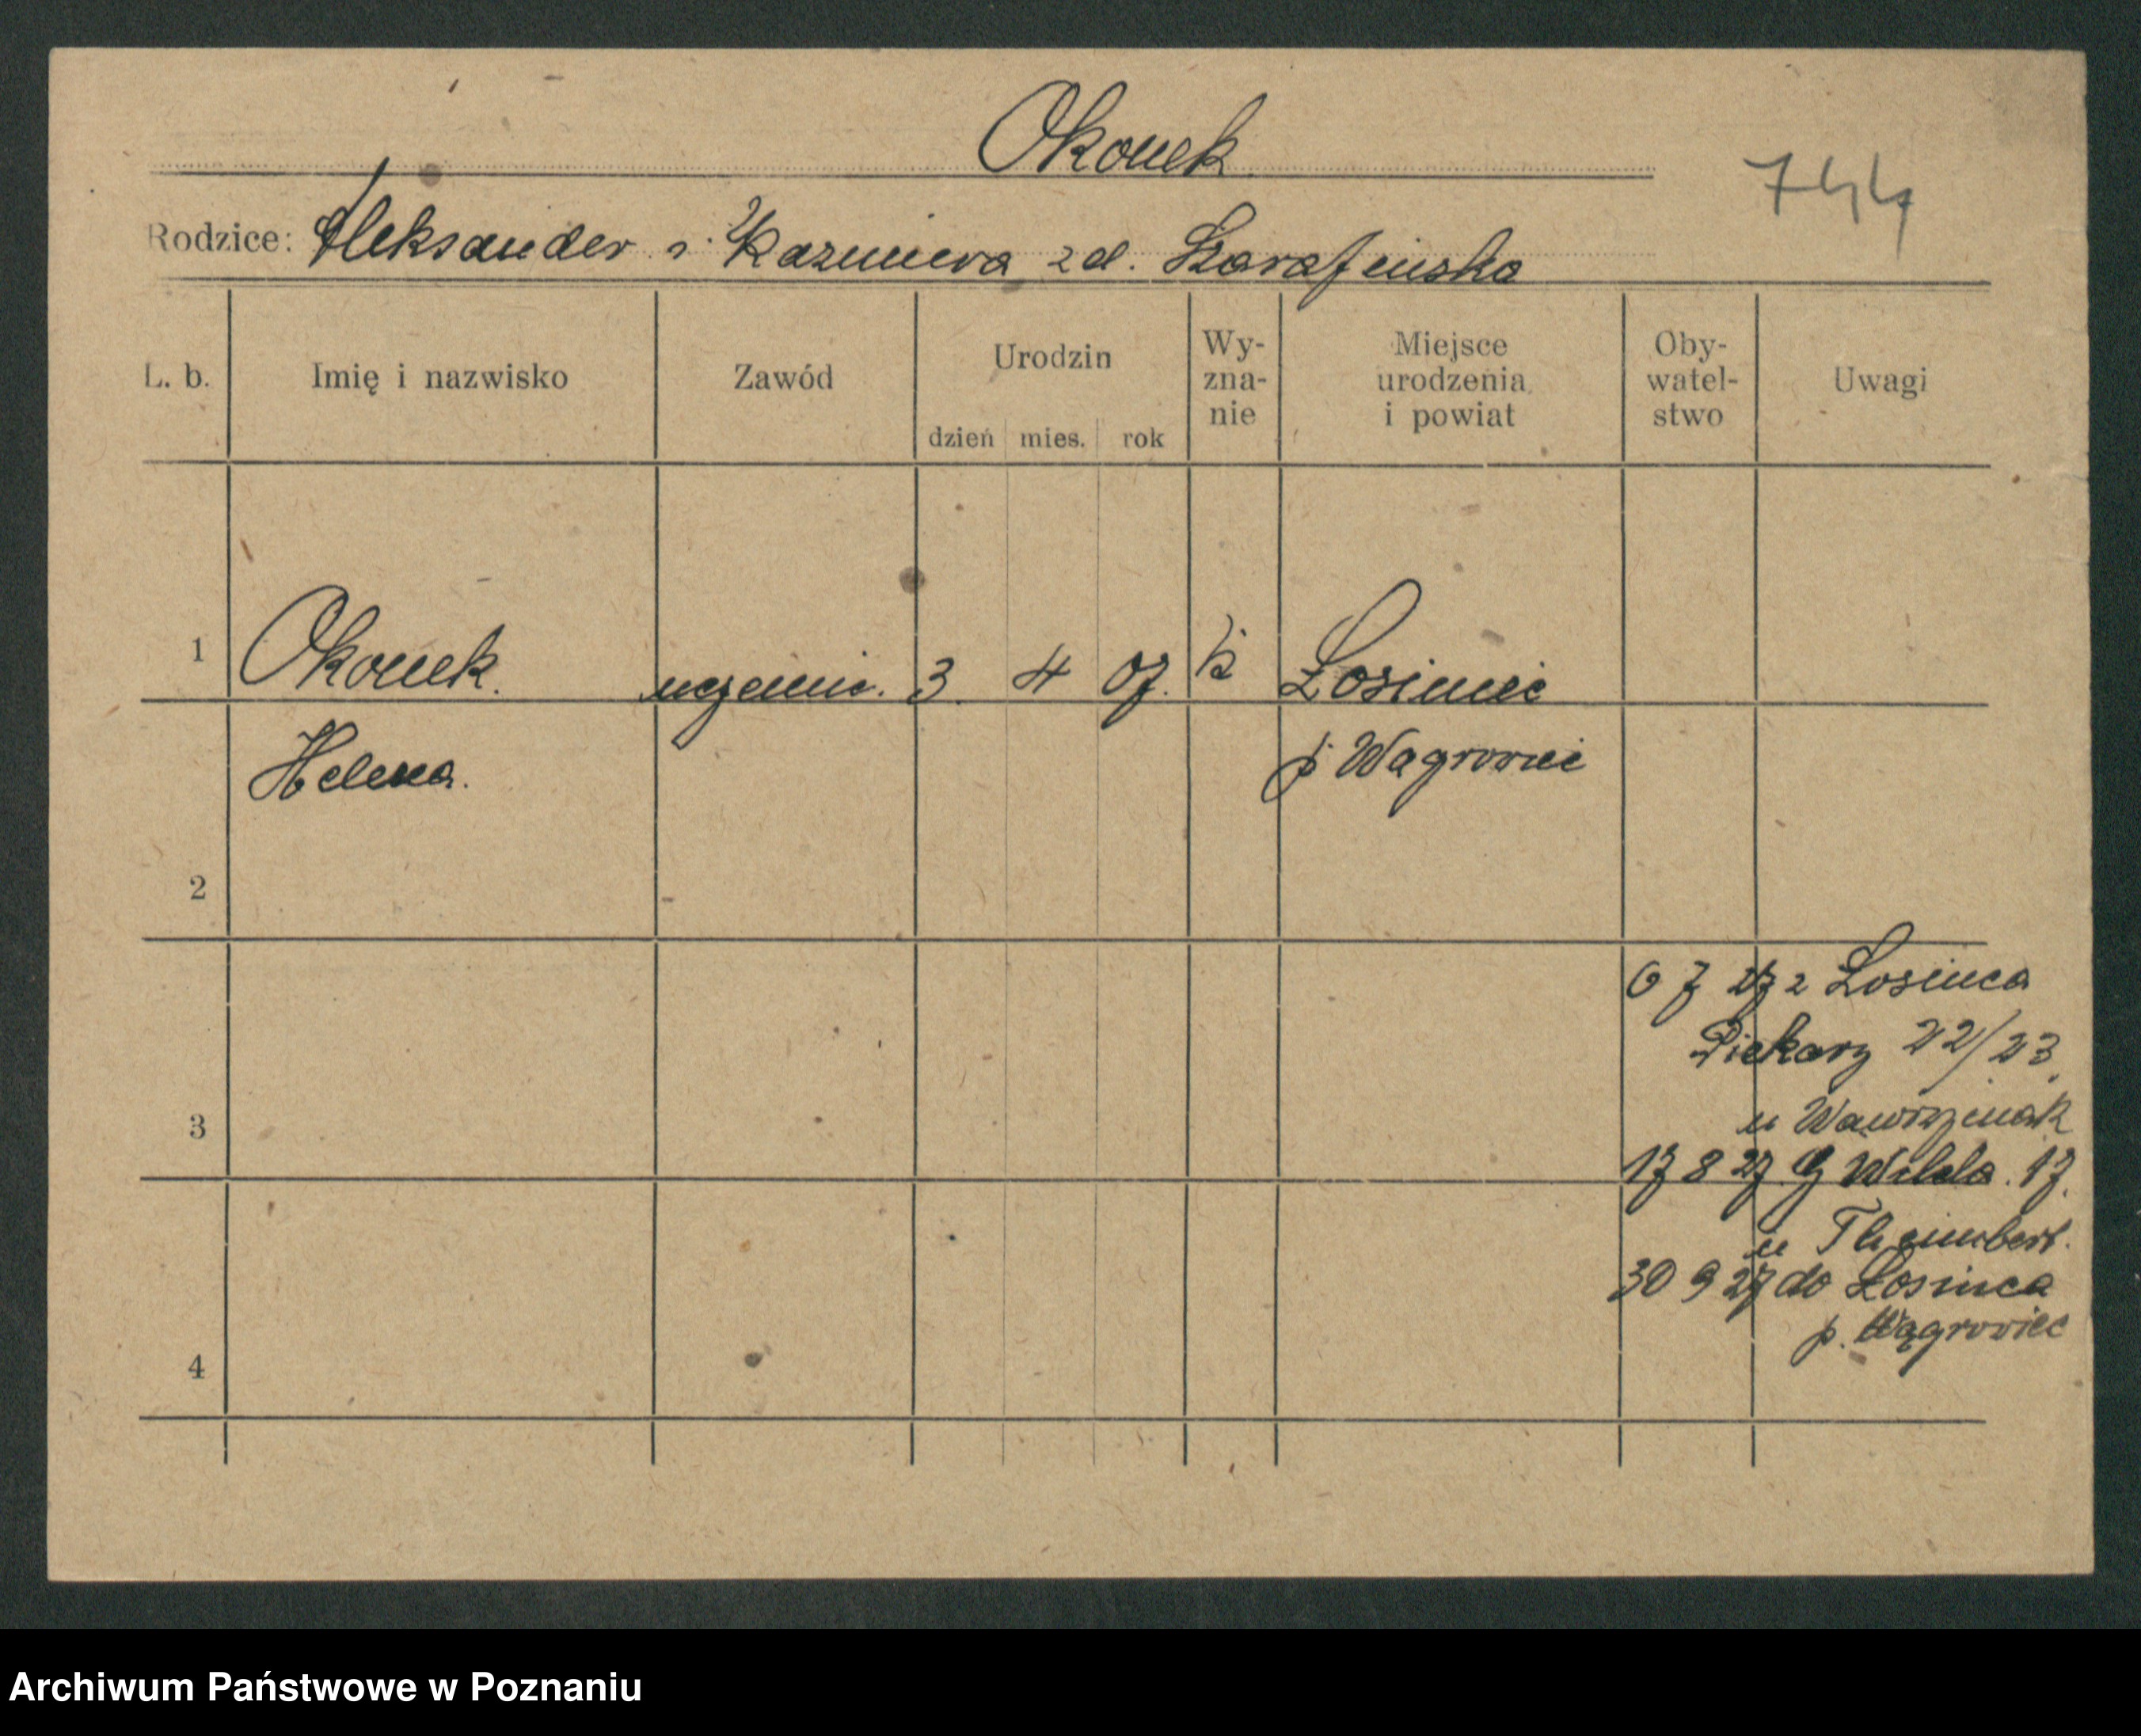 Okonek
744
Rodzice: Aleksander i Kazmiera z d. Szarafinska
L. b. Imię i nazwisko Zawód Urodzin dzień mies. rok Wy-zna-nie Miejsce urodzenia i powiat Oby-watel-stwo Uwagi
1 Okonek uczennic. 3. 4 07. k Łosiniec
Helena. p Wągrowiec
2
6 7 27 z Łosinca
Piekary 22/23
u Wawrzyniak
3
17 8 27 G Wilda. 17.
u
30 9 27 do Łosinca
p. Wągrowiec
4
Archiwum Państwowe w Poznaniu